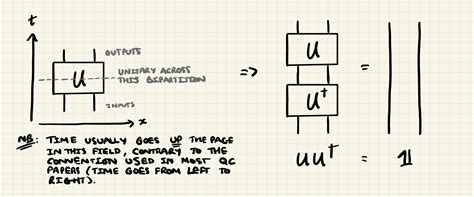 t
OUTPUTS
U
UNITARY ACROSS
THIS BIPARTITION
INPUTS
x
NB: TIME USUALLY GOES UP THE PAGE
IN THIS FIELD, CONTRARY TO THE
CONVENTION USED IN MOST QC
PAPERS (TIME GOES FROM LEFT TO
RIGHT).
=>
U
U†
=
UU† = 𝟙